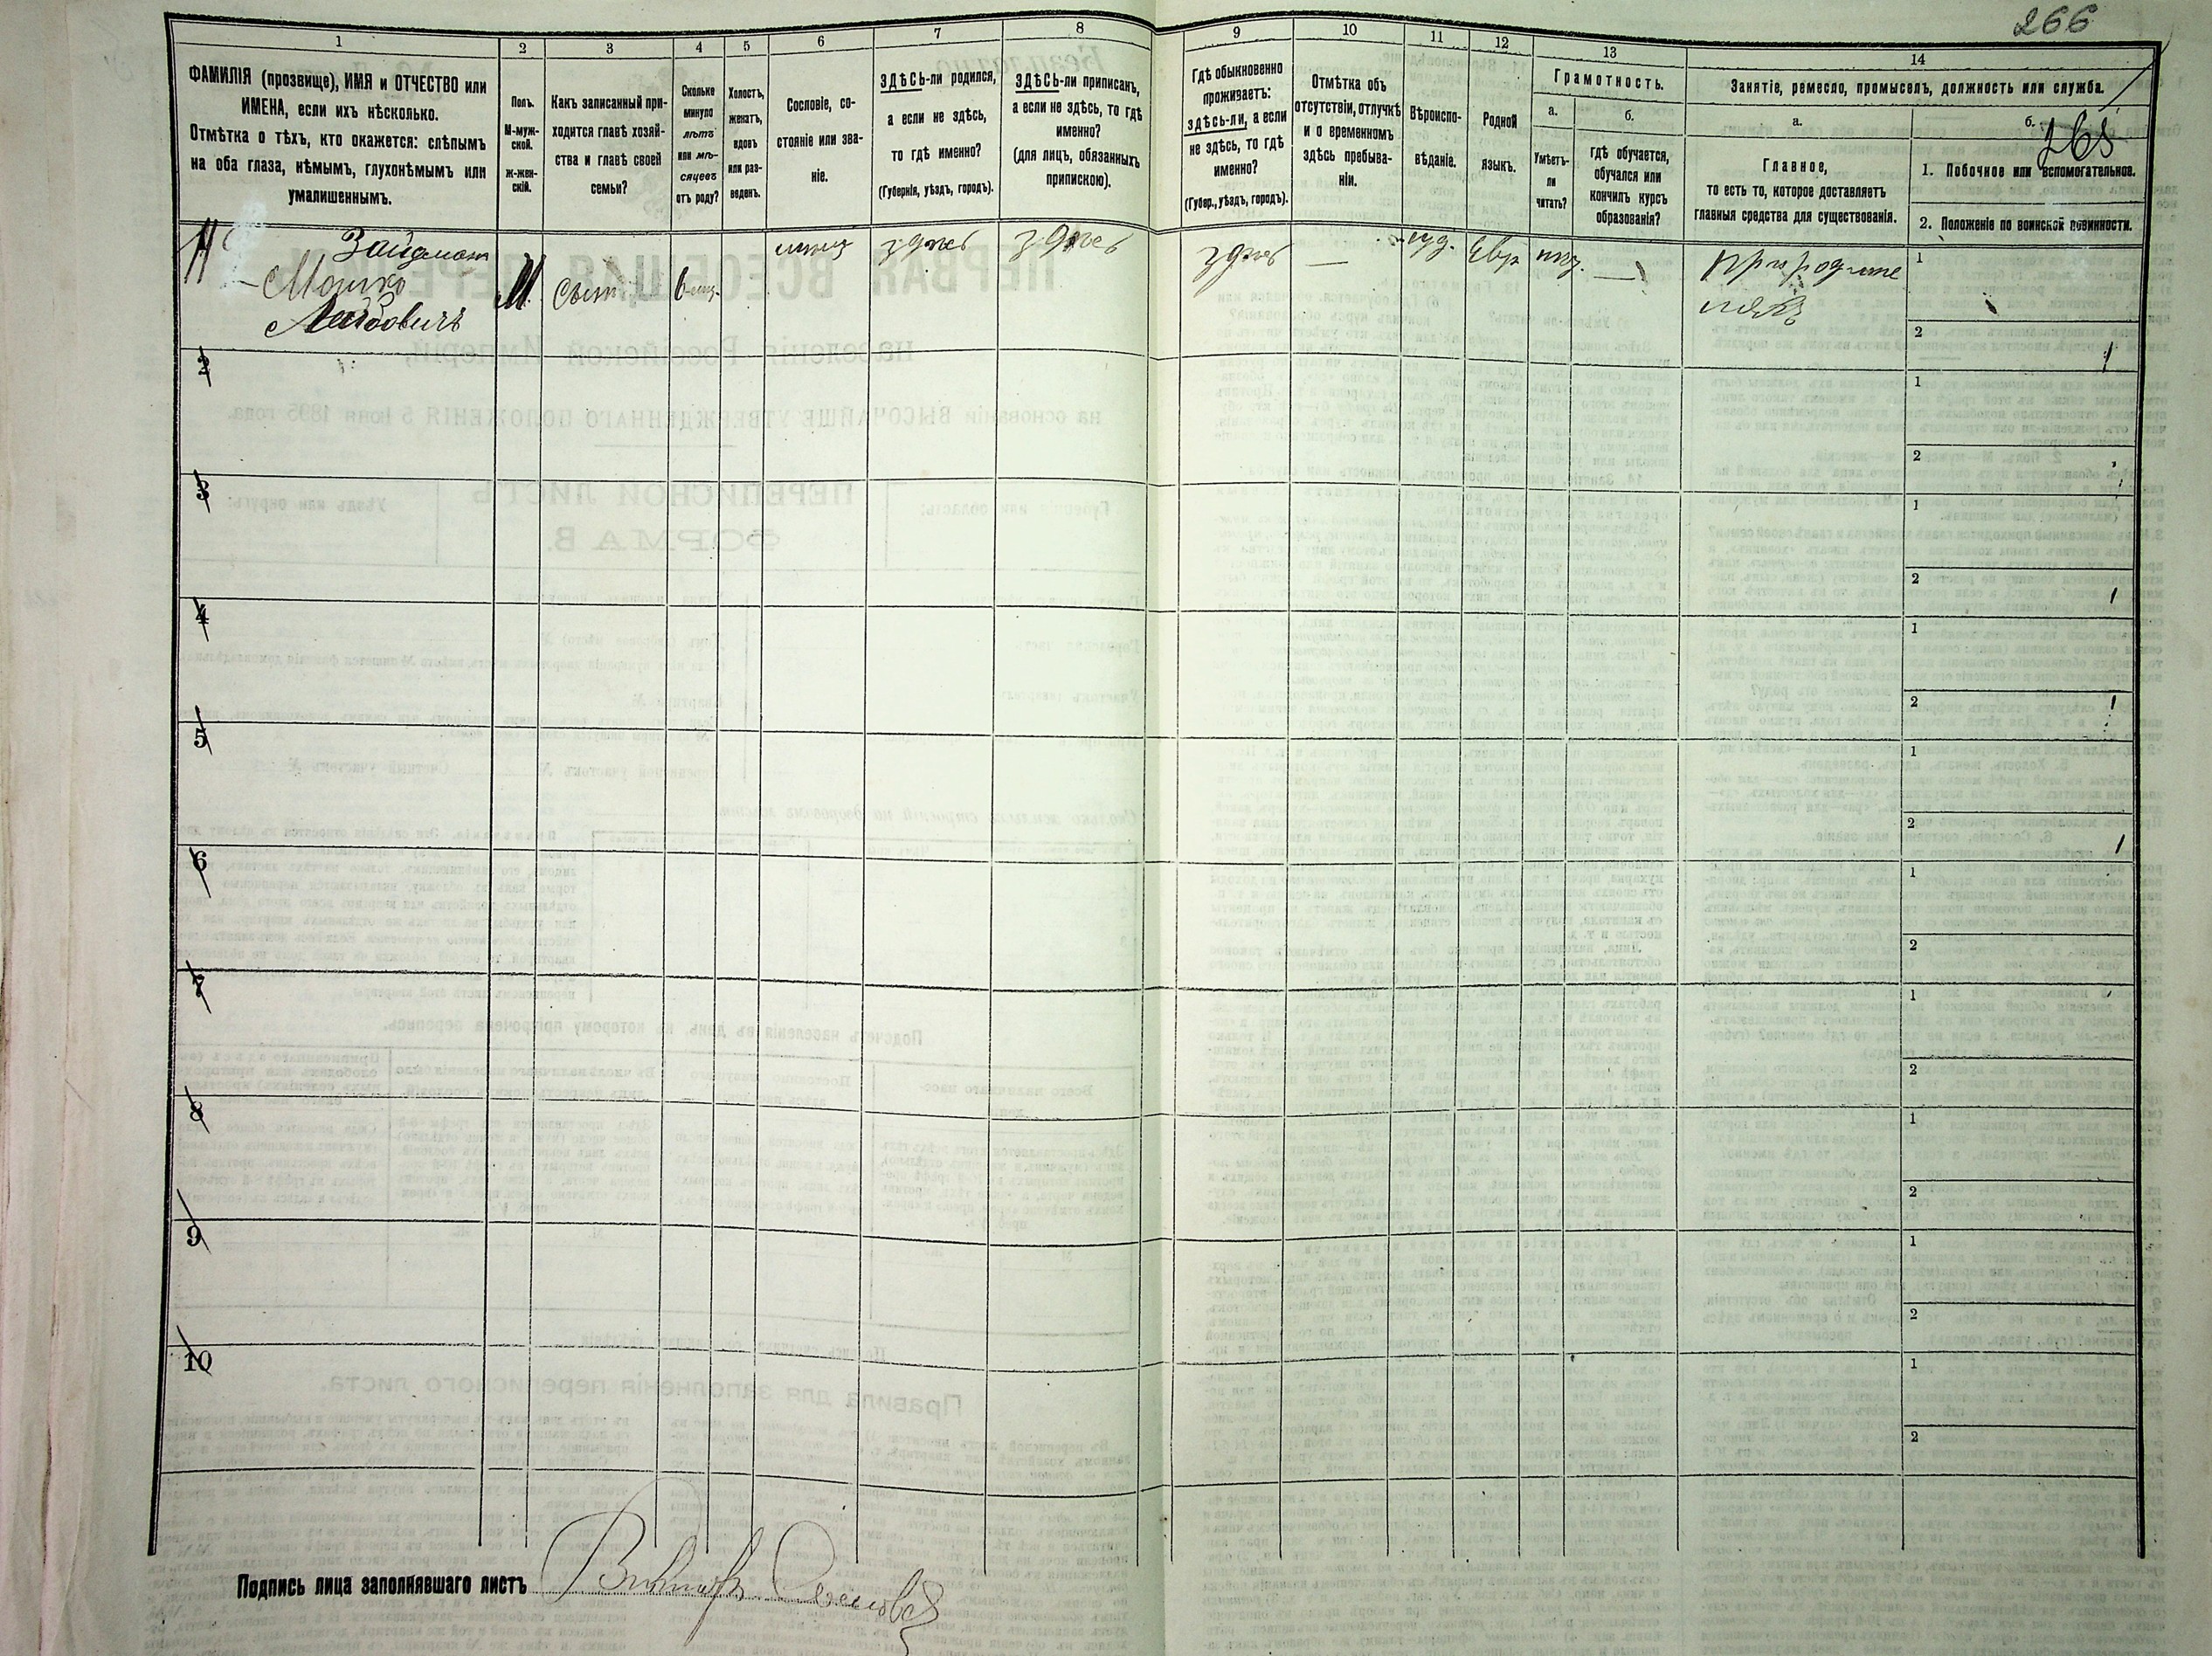 266
1
2
3
4
5
6
7
8
9
10
11
12
13
14
ФАМИЛІЯ (прозвище), ИМЯ и ОТЧЕСТВО или
ИМЕНА, если ихъ нѣсколько.
Отмѣтка о тѣхъ, кто окажется: слѣпымъ
на оба глаза, нѣмымъ, глухонѣмымъ или
умалишеннымъ.
Полъ.
М-муж-
ской.
ж-жен-
скій.
Какъ записанный при-
ходится главѣ хозяй-
ства и главѣ своей
семьи?
Сколько
минуло
лѣтъ
или мѣ-
сяцевъ
отъ роду?
Холостъ,
женатъ,
вдовъ
или раз-
веденъ.
Сословіе, со-
стояніе или зва-
ніе.
ЗДѢСЬ-ли родился,
а если не здѣсь,
то гдѣ именно?
(Губернія, уѣздъ, городъ).
ЗДѢСЬ-ли приписанъ,
а если не здѣсь, то гдѣ
именно?
(для лицъ, обязанныхъ
припискою).
Гдѣ обыкновенно
проживаетъ:
здѣсь-ли, а если
не здѣсь, то гдѣ
именно?
(Губер., уѣздъ, городъ).
Отмѣтка объ
отсутствіи, отлучкѣ
и о временномъ
здѣсь пребыва-
ніи.
Вѣроиспо-
вѣданіе.
Родной
языкъ.
Грамотность.
а.
Умѣетъ-
ли
читать?
б.
гдѣ обучается,
обучался или
кончилъ курсъ
образованія?
Занятіе, ремесло, промыселъ, должность или служба.
а.
Главное,
то есть то, которое доставляетъ
главныя средства для существованія.
б.
268
1. Побочное или вспомогательное.
2. Положеніе по воинской повинности.
Зайдман
Мошко
Лейбович
М
сын
6 мц.
мещ
здѣсь
здѣсь
здѣсь
—
іуд.
Евр
нѣт.
—
при родите
лях
1
2
2
1
2
3
1
2
4
1
2
5
1
2
6
1
2
7
1
2
8
1
2
9
1
2
10
1
2
Подпись лица заполнявшаго листъ